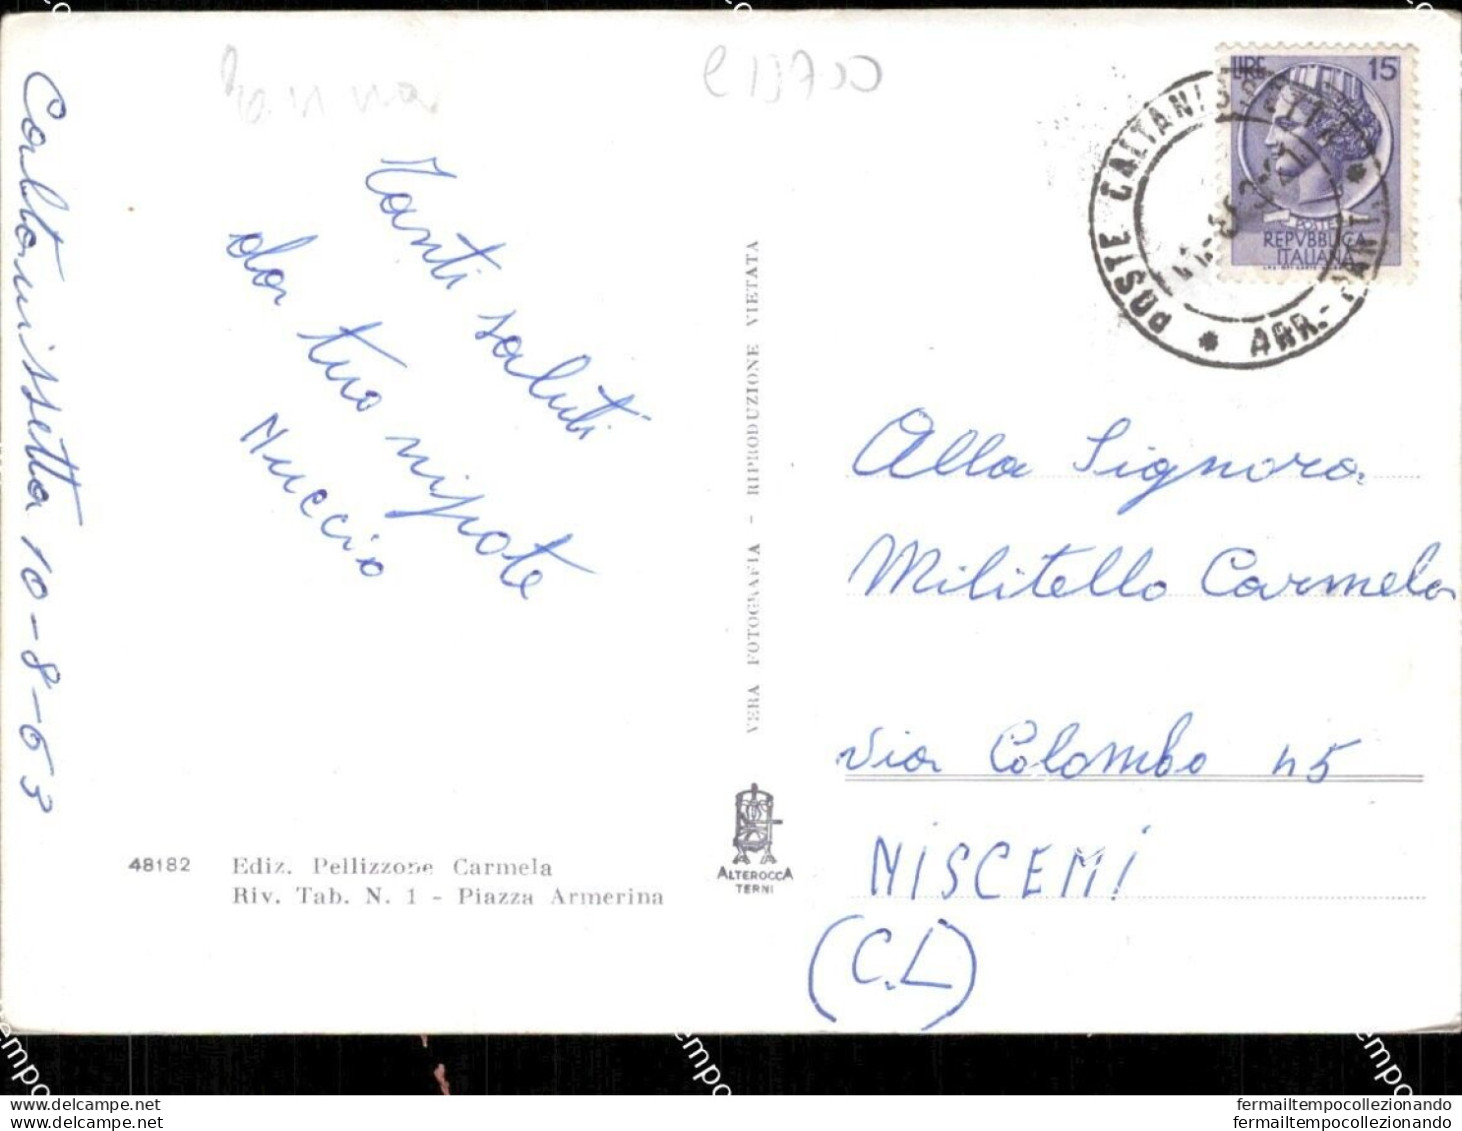 Caltanissetta 10-8-63
Tanti saluti
dal tuo nipote
Nuccio
48182 Ediz. Pellizzone Carmela
Riv. Tab. N. 1 - Piazza Armerina
VERA FOTOGRAFIA - RIPRODUZIONE VIETATA
ALTEROCCA
TERNI
LIRE 15
POSTE
REPVBBLICA
ITALIANA
POSTE CALTANISSETTA * ARR.-PART. *
Alla Signora
Militello Carmela
Via Colombo 45
NISCEMI
(C.L)
www.delcampe.net
tempocollezionando
fermailtempocollezionando
fermailtempocollezionando